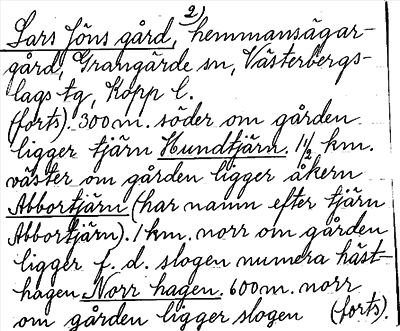 2)
Lars Jöns gård, hemmansägar-
gård, Grangärde sn, Västerbergs-
lags tg, Kopp l.
(forts). 300 m. söder om gården
ligger tjärn Hundtjärn. 1 1/2 km.
väster om gården ligger åkern
Abbortjärn (har namn efter tjärn
Abbortjärn). 1 km. norr om gården
ligger f. d. slogen numera häst-
hagen Norr hagen. 600 m. norr
om gården ligger slogen (forts).